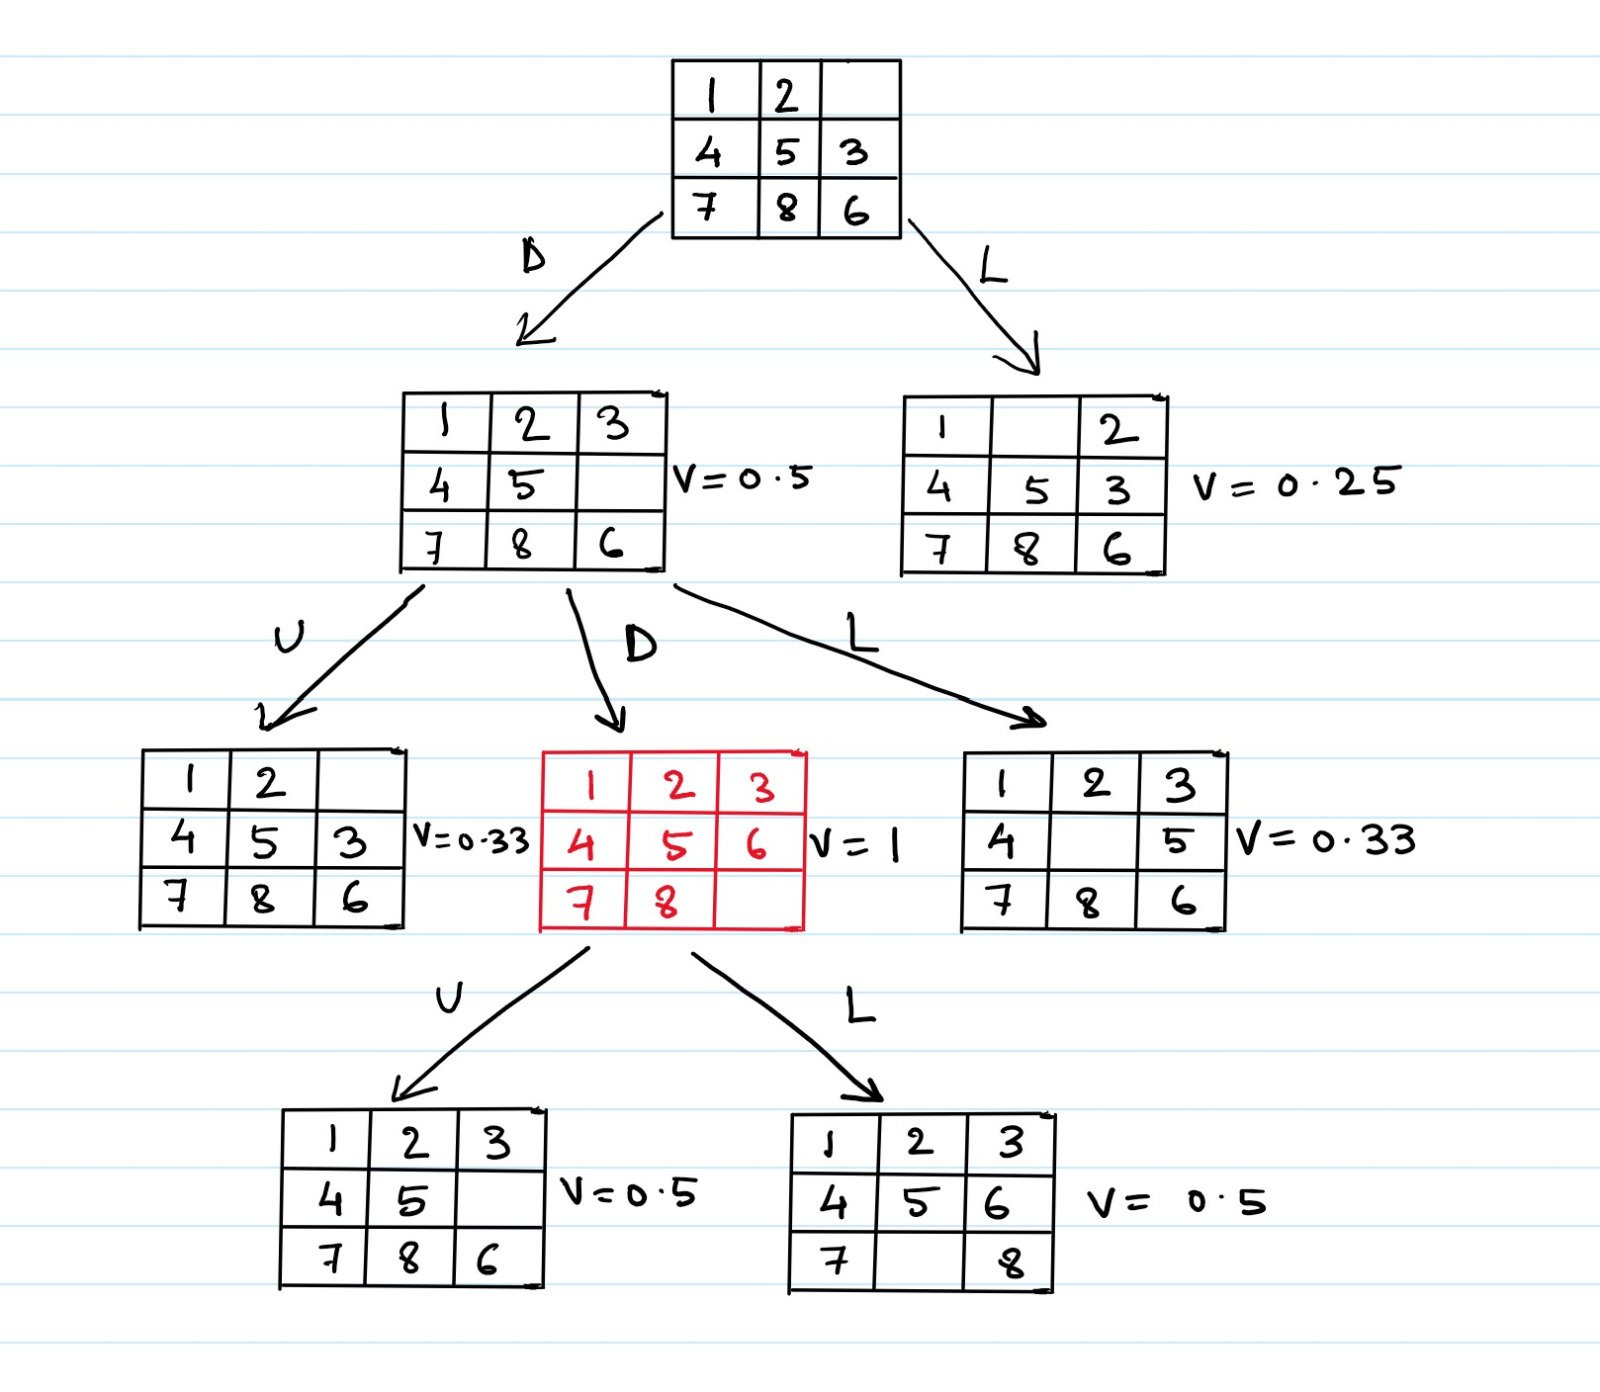 1 2
4 5 3
7 8 6
D L
1 2 3
4 5
7 8 6
V = 0.5
1 2
4 5 3
7 8 6
V = 0.25
U D L
1 2
4 5 3
7 8 6
V = 0.33
1 2 3
4 5 6
7 8
V = 1
1 2 3
4 5
7 8 6
V = 0.33
U L
1 2 3
4 5
7 8 6
V = 0.5
1 2 3
4 5 6
7 8
V = 0.5